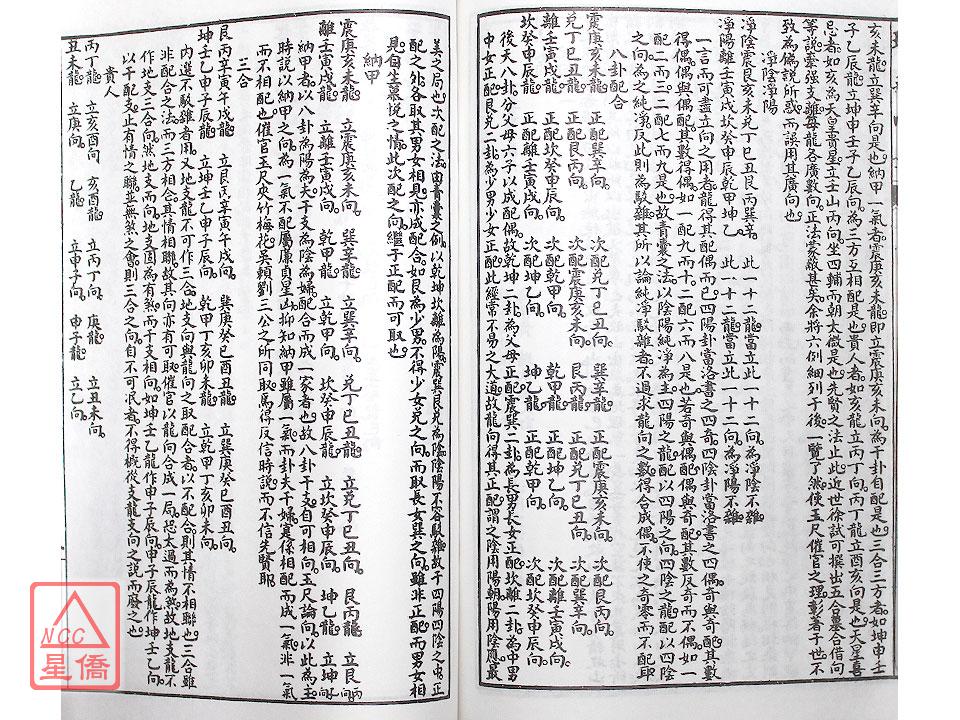 亥未龍立巽辛向是也納甲一氣者震庚亥未龍即立震庚亥未向為干卦自配是也三合三方者如坤申壬
子乙辰龍立坤申壬子乙辰向為三方互相配是也貴人者如亥龍立丙丁向丙丁龍立酉亥向是也天星喜
忌者如亥為天皇貴星立壬山丙向坐四輔而朝太微是也先賢之法止此近世徐試可撰出五合量合借向
等說牽強支離每龍各廣數向正法蒙蔽甚矣余將六例細列于後一覽了然使玉尺催官之理彰著于世不
致為偽說所惑而誤用其廣向也
淨陰淨陽
淨陰震艮亥未兌丁巳丑艮丙巽辛 此一十二龍當立此一十二向為淨陰不雜
淨陽離壬寅戌坎癸申辰乾甲坤乙 此一十二龍當立此一十二向為淨陽不雜
一言而可盡立向之用者龍得其配偶而已四陽卦當洛書之四奇四陰卦當洛書之四偶奇與奇配其數
得偶偶與偶配其數得偶如一配九而十二配六而八是也若奇與偶配偶與奇配其數反奇而不偶如一
配二而三二配七而九是也故青囊之法以陰陽純淨為主四陽之龍配以四陽之向四陰之龍配以四陰
之向為之純淨反此則為駁雜其所以論純淨駁雜者不過求龍向之數得合成偶不使之奇零而不配耶
八卦配合
震庚亥未龍 正配巽辛向 次配兌丁巳丑向 巽辛龍 正配震庚亥未向 次配艮丙向
兌丁巳丑龍 正配艮丙向 次配震庚亥未向 艮丙龍 正配兌丁巳丑向 次配巽辛向
離壬寅戌龍 正配坎癸申辰向 次配乾甲向 乾甲龍 正配坤乙向 次配離壬寅戌向
坎癸申辰龍 正配離壬寅戌向 次配坤乙向 坤乙龍 正配乾甲向 次配坎癸申辰向
後天八卦分父母六子以成配偶故乾坤二卦為父母正配震巽二卦為長男長女正配坎離二卦為中男
中女正配艮兌二卦為少男少女正配此經常不易之大道故龍向得其正配謂之陰用陽朝陽用陰應最
美之局也次配之法由青囊之例以乾坤坎離為陽震巽艮兌為陰陰陽不容駁雜故于四陽四陰之中正
配之外各取其男女相見亦成配合如艮為少男不得少女兌之向而取長女巽之向雖非正配而男女相
見自生慕悅之情此次配之向繼于正配而可取也
納甲
震庚亥未龍 立震庚亥未向 巽辛龍 立巽辛向 兌丁巳丑龍 立兌丁巳丑向 艮丙龍 立艮丙向
離壬寅戌龍 立離壬寅戌向 乾甲龍 立乾甲向 坎癸申辰龍 立坎癸申辰向 坤乙龍 立坤乙向
納甲者以八卦為陽為夫干支為陰為婦配合而成一家者也故八卦干支自可相向玉尺論向以此為主
時說以納甲之向為一氣不配屬廉貞星山抑知納甲雖屬一氣而卦夫干婦寔係相配而成一氣非一氣
而不相配也催官玉尺夾竹梅花吳賴劉三公之所同取焉得反信時說而不信先賢耶
三合
艮丙辛寅午戌龍 立艮丙辛寅午戌向 巽庚癸巳酉丑龍 立巽庚癸巳酉丑向
坤壬乙申子辰龍 立坤壬乙申子辰向 乾甲丁亥卯未龍 立乾甲丁亥卯未向
內選不駁雜者用又地支龍不可作三合地支向與龍向之取配合者以不配合則其情不相聯也三合雖
非配合之法而三方相合其情相聯故其向亦有可取催官以龍向合成一局恐太過而為煞故地支龍不
作地支三合向然地支而向地支固為有煞而干支相向如坤壬乙龍作申子辰向申子辰龍作坤壬乙向
以干配支止有情之聯並無煞之會則三合之向自不可泯者不得概從支龍支向之說而廢之也
貴人
丙丁龍 立亥酉向 亥酉龍 立丙丁向 庚龍 立丑未向
丑未龍 立庚向 乙龍 立申子向 申子龍 立乙向
NCC
星僑